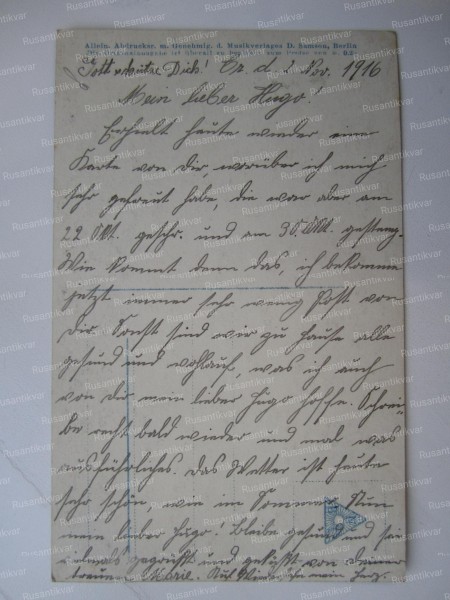 Allein. Abdrucksr. m. Genehmig. d. Musikverlages D. Samson, Berlin
Gott schütze Dich! d. 1 Nov. 1916
Mein lieber Hugo!
Erhielt heute wieder eine
Karte von Dir, worüber ich mich
sehr gefreut habe, die war aber am
22 Okt. geschr. und am 30. Okt. gestemp.
Wie kommt denn das, ich bekomme
jetzt immer sehr wenig Post von
Dir. Sonst sind wir zu Hause alle
gesund und wohlauf, was ich auch
von Dir mein lieber Hugo hoffe. Schrei-
be recht bald wieder und mal was
ausführliches. Das Wetter ist heute
sehr schön, wie im Sommer. Nun
mein lieber Hugo! Bleibe gesund und sei
vielmals gegrüsst und geküsst von Deiner
treuen Marie. Auf Wiedersehn mein Hugo.
Rusantikvar